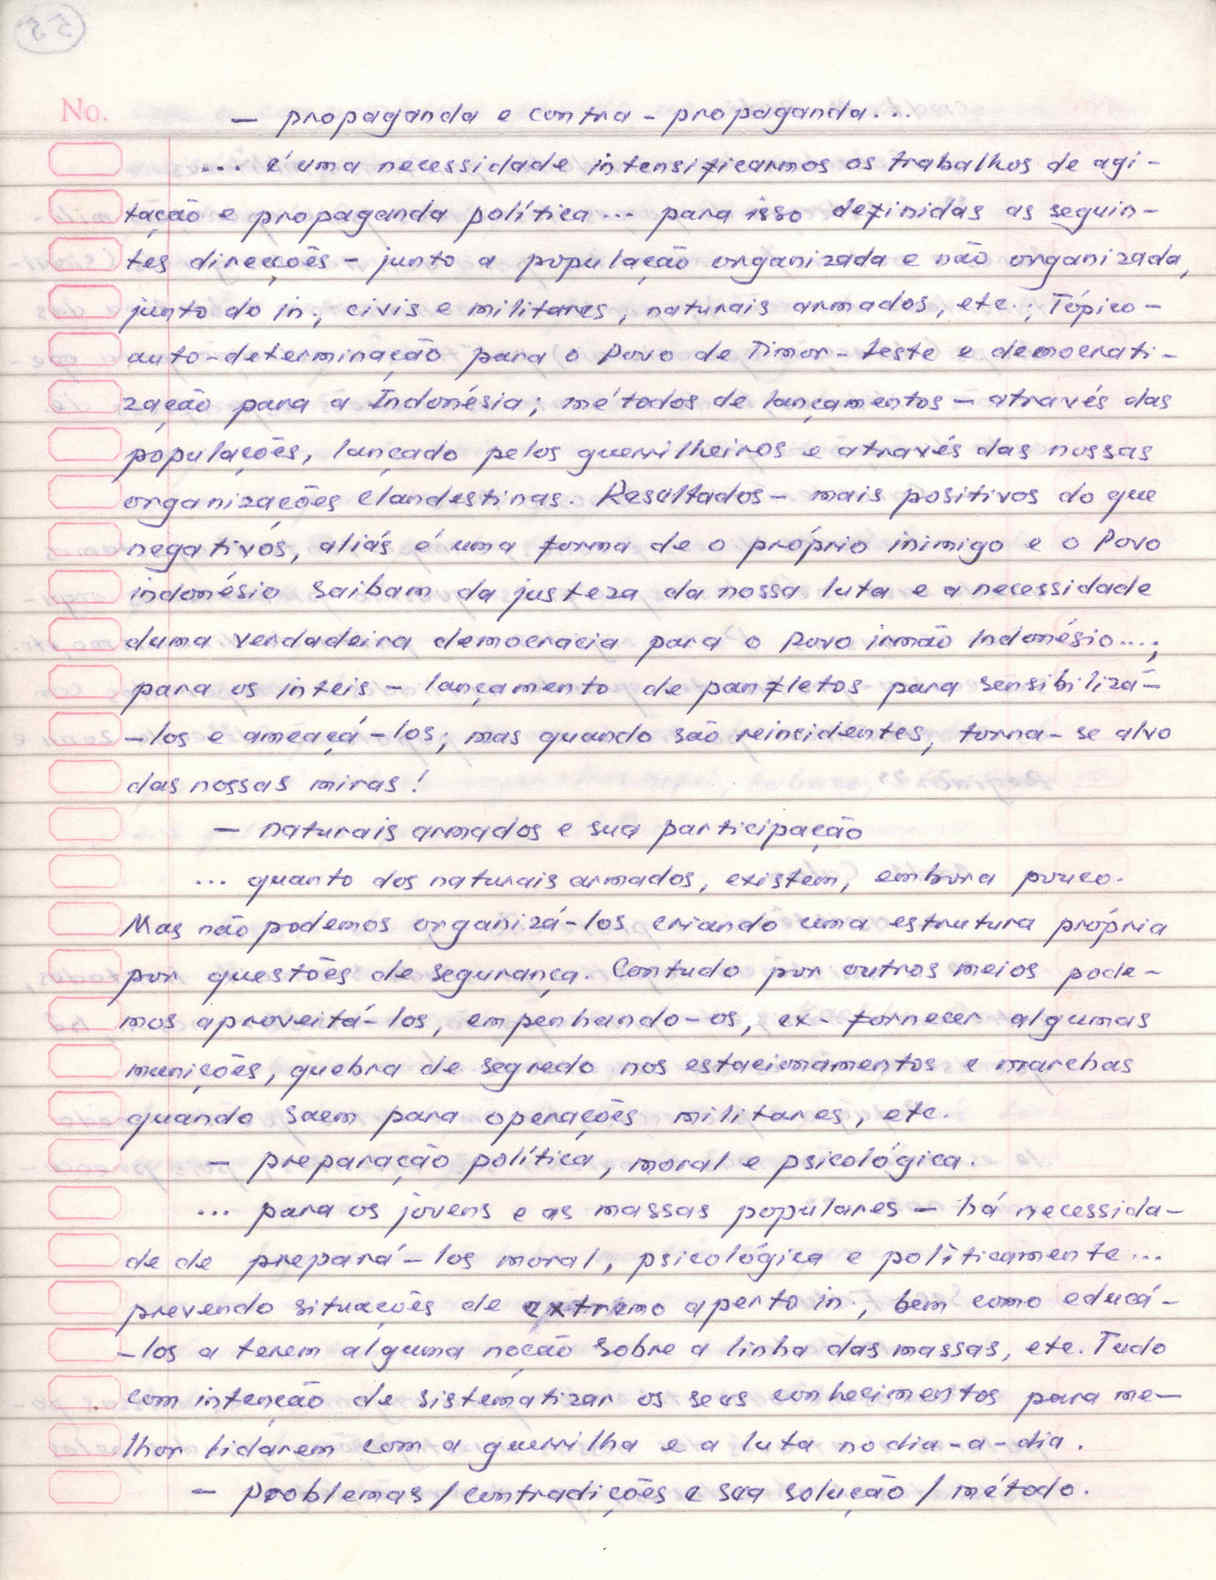 No.
— propaganda e contra-propaganda...
... é uma necessidade intensificarmos os trabalhos de agi-
tação e propaganda política... para isso definidas as seguin-
tes direcções - junto a população organizada e não organizada,
junto do in., civis e militares, naturais armados, etc.; Tópico-
auto-determinação para o Povo de Timor-Leste e democrati-
zação para a Indonésia; métodos de lançamentos - através das
populações, lançado pelos guerrilheiros e através das nossas
organizações clandestinas. Resultados - mais positivos do que
negativos, aliás é uma forma de o próprio inimigo e o Povo
indonésio saibam da justeza da nossa luta e a necessidade
duma verdadeira democracia para o Povo irmão Indonésio...;
para os inteis - lançamento de panfletos para sensibilizá-
-los e ameaçá-los; mas quando são reincidentes, torna-se alvo
das nossas miras!
— naturais armados e sua participação
... quanto dos naturais armados, existem, embora pouco.
Mas não podemos organizá-los criando uma estrutura própria
por questões de segurança. Contudo por outros meios pode-
mos aproveitá-los, empenhando-os, ex- fornecer algumas
munições, quebra de segredo nos estacionamentos e marchas
quando saem para operações militares, etc.
— preparação política, moral e psicológica.
... para os jovens e as massas populares - há necessida-
de de prepará-los moral, psicológica e políticamente...
prevendo situações de extremo aperto in., bem como educá-
-los a terem alguma noção sobre a linha das massas, etc. Tudo
com intenção de sistematizar os seus conhecimentos para me-
lhor lidarem com a guerrilha e a luta no dia-a-dia.
— problemas / contradições e sua solução / método.